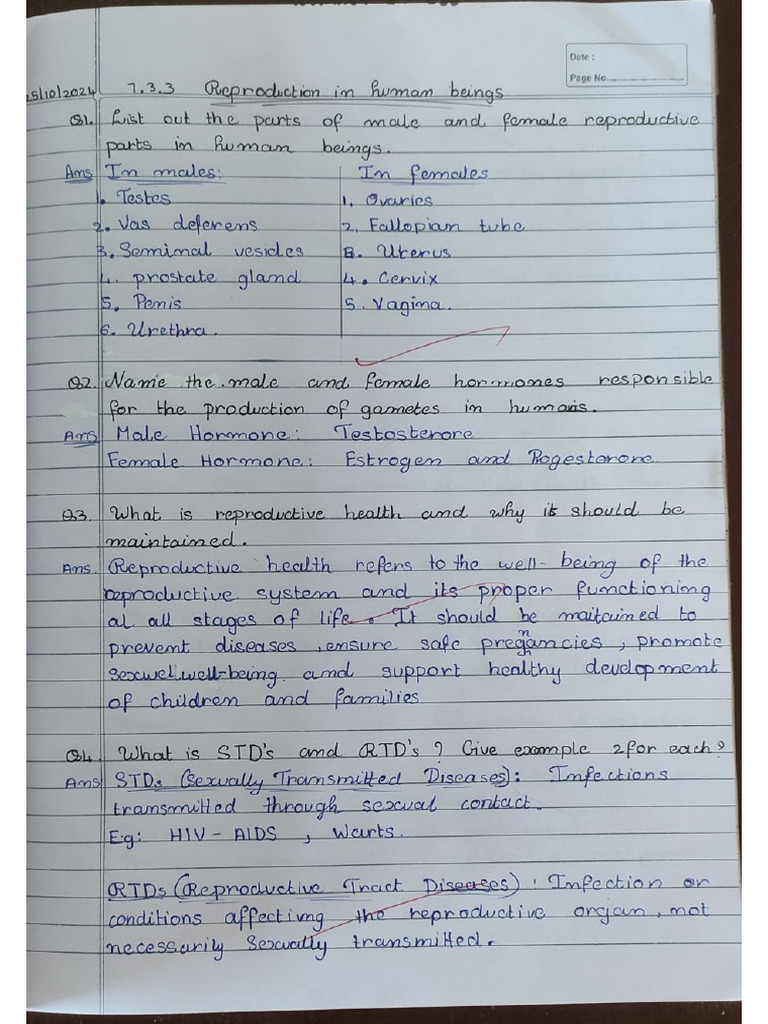 Date :
Page No.
25/10/2024 7.3.3 Reproduction in human beings
Q1. List out the parts of male and female reproductive
parts in human beings.
Ans In males: In females
1. Testes 1. Ovaries
2. Vas deferens 2. Fallopian tube
3. Seminal vesicles 3. Uterus
4. prostate gland 4. Cervix
5. Penis 5. Vagina.
6. Urethra.
Q2. Name the male and female hormones responsible
for the production of gametes in humans.
Ans Male Hormone: Testosterone
Female Hormone: Estrogen and Progesterone
Q3. What is reproductive health and why it should be
maintained.
Ans. Reproductive health refers to the well-being of the
reproductive system and its proper functioning
at all stages of life. It should be maitained to
prevent diseases, ensure safe pregnancies, promote
sexwel well-being and support healthy development
of children and families
Q4. What is STD's and RTD's? Give example 2 for each?
Ans STDs (Sexually Transmitted Diseases): Infections
transmitted through sexual contact.
E.g: HIV - AIDS, Warts.
RTDs (Reproductive Tract Diseases): Infection or
conditions affecting the reproductive organ, not
necessarily sexually transmitted.